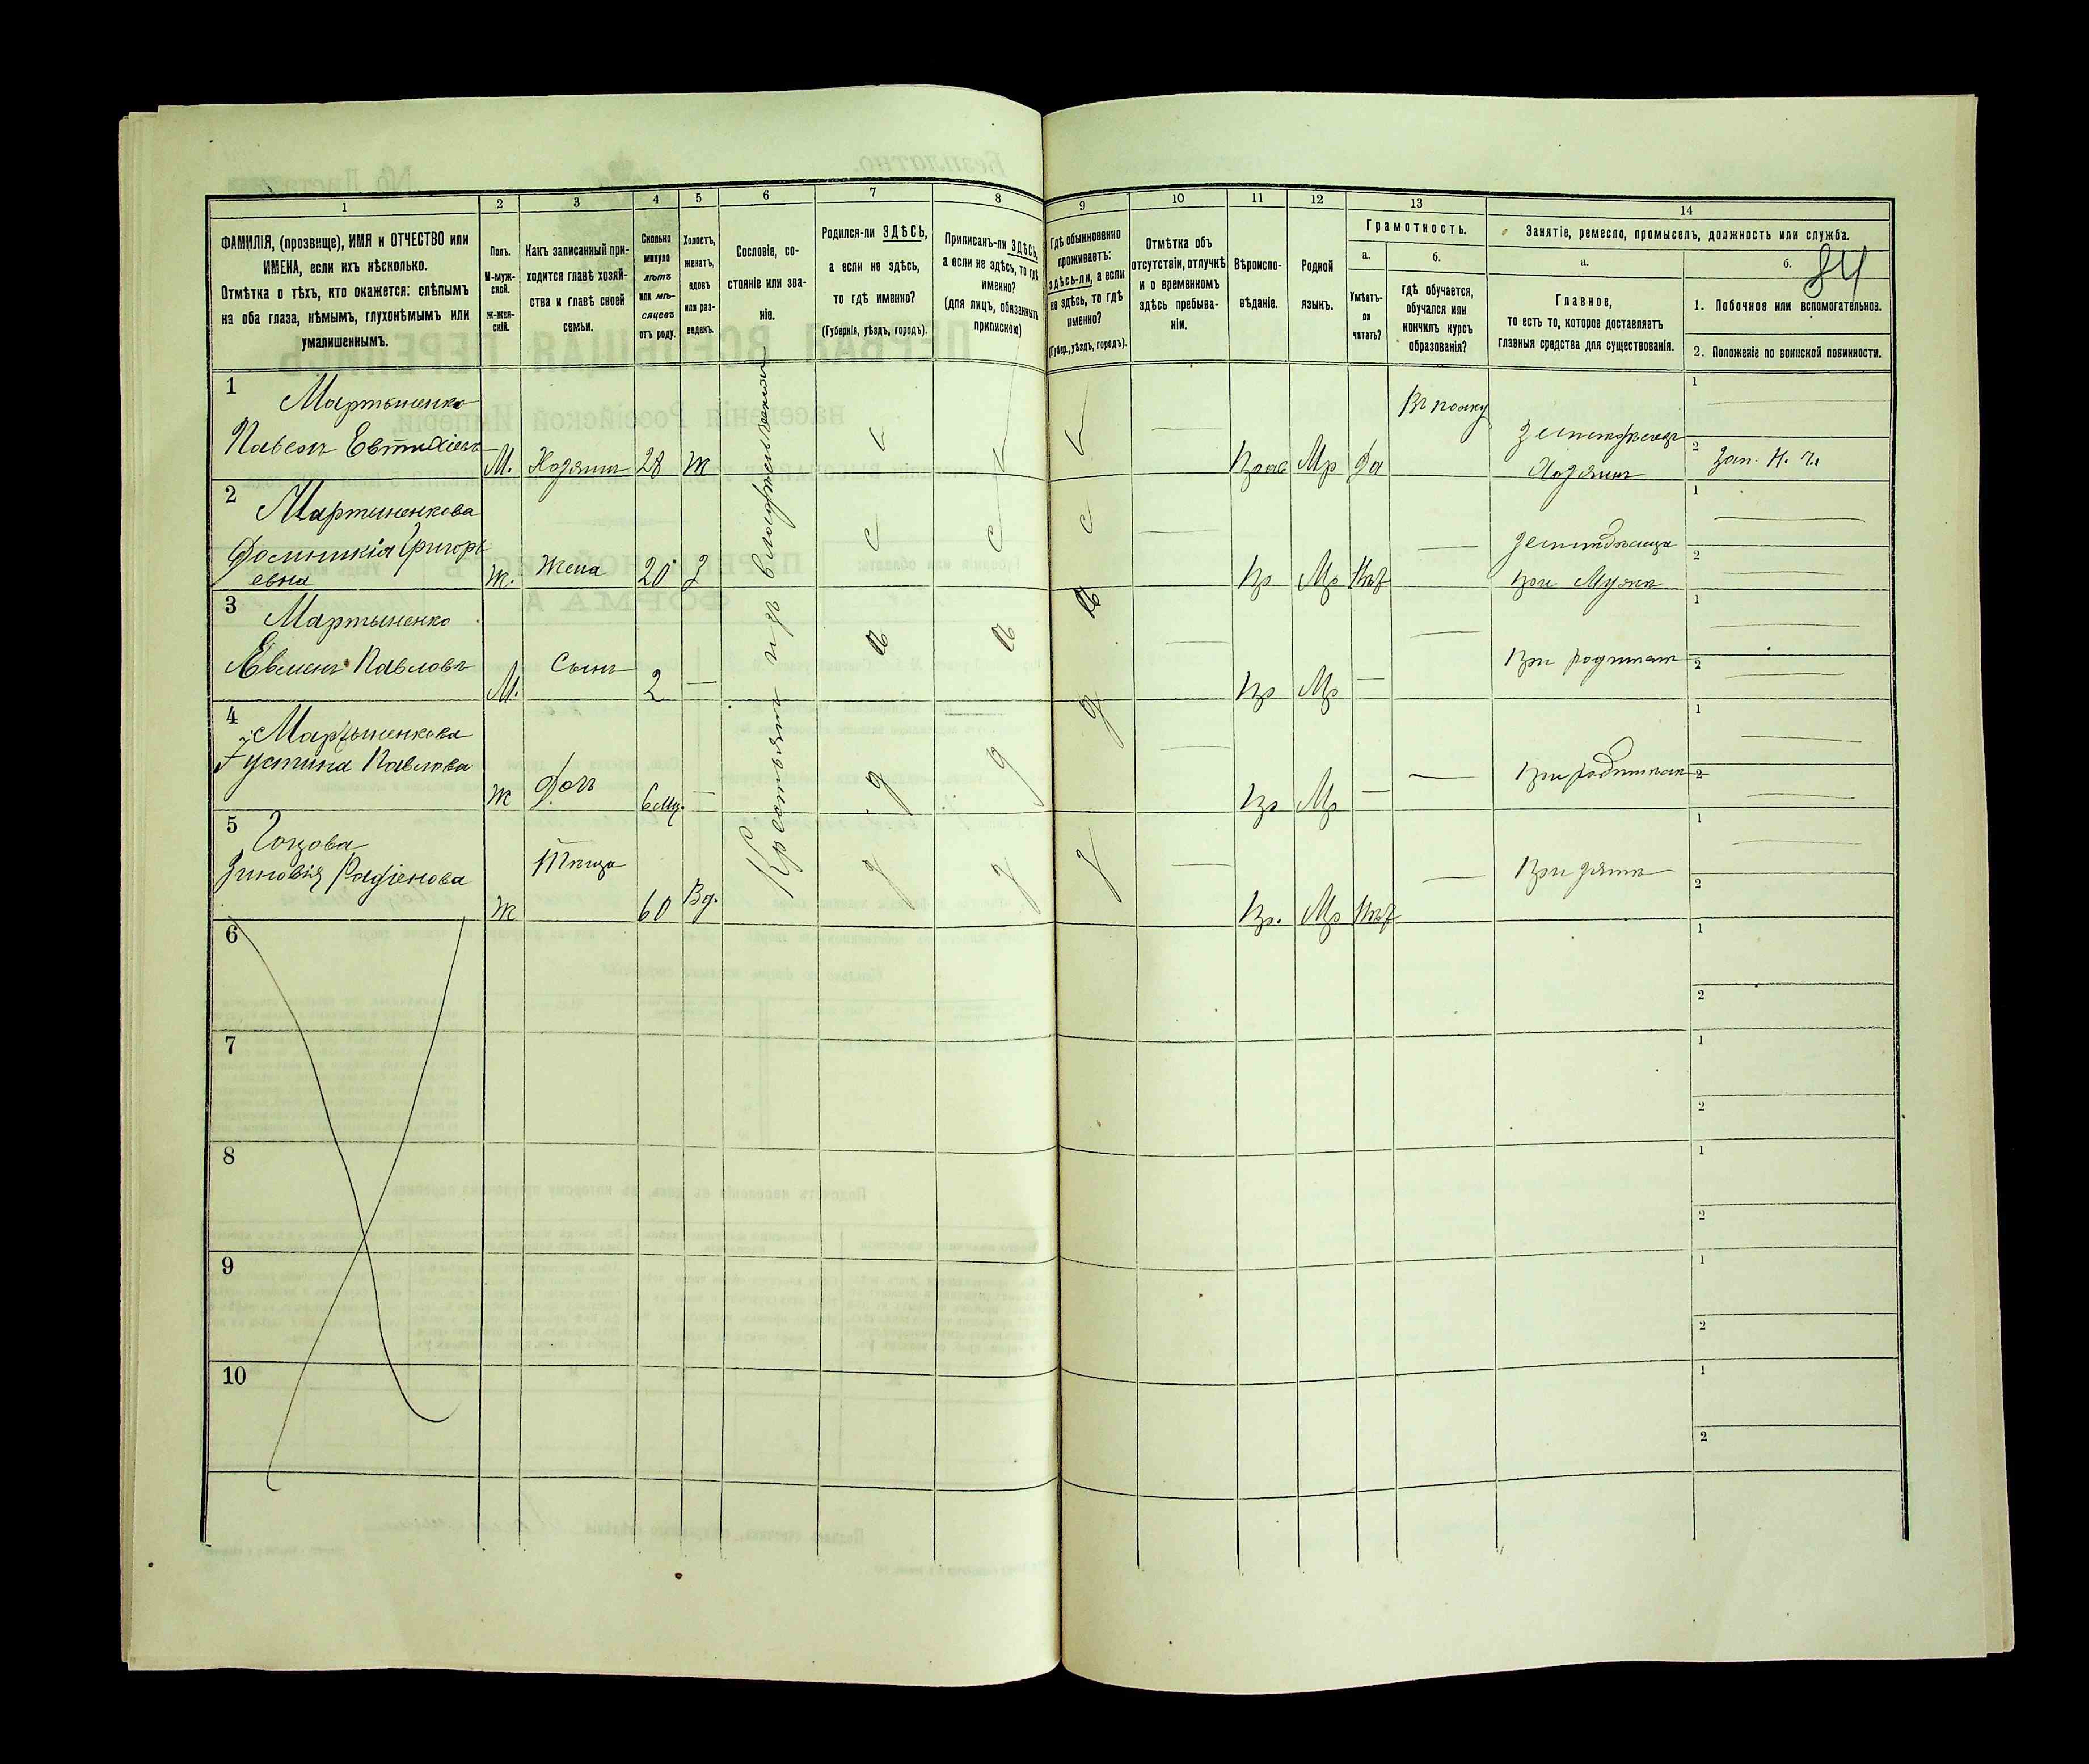 84
1 2 3 4 5 6 7 8 9 10 11 12 13 14
ФАМИЛІЯ, (прозвище), ИМЯ и ОТЧЕСТВО или
ИМЕНА, если ихъ нѣсколько.
Отмѣтка о тѣхъ, кто окажется: слѣпымъ
на оба глаза, нѣмымъ, глухонѣмымъ или
умалишеннымъ.
Полъ.
М-муж-
ской.
ж-жен-
скій.
Какъ записанный при-
ходится главѣ хозяй-
ства и главѣ своей
семьи.
Сколько
минуло
лѣтъ
или мѣ-
сяцевъ
отъ роду.
Холостъ,
женатъ,
вдовъ
или раз-
веденъ.
Сословіе, со-
стояніе или зва-
ніе.
Родился-ли ЗДѢСЬ,
а если не здѣсь,
то гдѣ именно?
(Губернія, уѣздъ, городъ).
Приписанъ-ли ЗДѢСЬ,
а если не здѣсь, то гдѣ
именно?
(для лицъ, обязанныхъ
припискою)
Гдѣ обыкновенно
проживаетъ:
здѣсь-ли, а если
не здѣсь, то гдѣ
именно?
(Губер., уѣздъ, городъ).
Отмѣтка объ
отсутствіи, отлучкѣ
и о временномъ
здѣсь пребыва-
ніи.
Вѣроиспо-
вѣданіе.
Родной
языкъ.
Грамотность.
а.
Умѣетъ-
ли
читать?
б.
гдѣ обучается,
обучался или
кончилъ курсъ
образованія?
Занятіе, ремесло, промыселъ, должность или служба.
а.
Главное,
то есть то, которое доставляетъ
главныя средства для существованія.
б.
1. Побочное или вспомогательное.
2. Положеніе по воинской повинности.
Крестьянинъ изъ
1
Мартыненко
Павелъ Евтихіевъ
М. Хозяинъ 28 Ж
Прав Мр Да
Въ полку
Хозяинъ
1
2 Зап. Н. Ч.
2
Мартыненкова
Доминикія Григорь
евна
Ж. Жена 20 З
Пр Мр Нѣт
при Мужѣ
1
2
3
Мартыненко
Евменъ Павловъ
М. Сынъ 2 —
Пр Мр —
При родител
1
2
4
Мартыненкова
Густина Павлова
Ж Дочь 6 мц. —
Пр Мр —
При родителях
1
2
5
Зиновія Радіонова
Ж Тѣща 60 Вд.
Пр. Мр Нѣт
При зятѣ
1
2
6
1
2
7
1
2
8
1
2
9
1
2
10
1
2